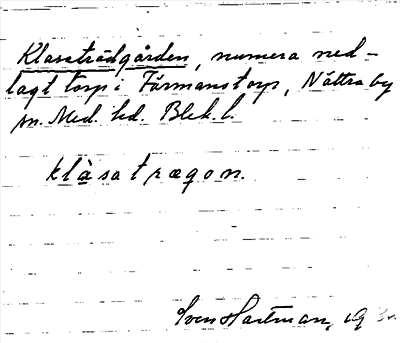 Klasaträdgården, numera ned-
lagt torp i Förmanstorp, Nättraby
sn. Med. hd. Blek. l.
klàsatrægon.
Sven Hartman, 19